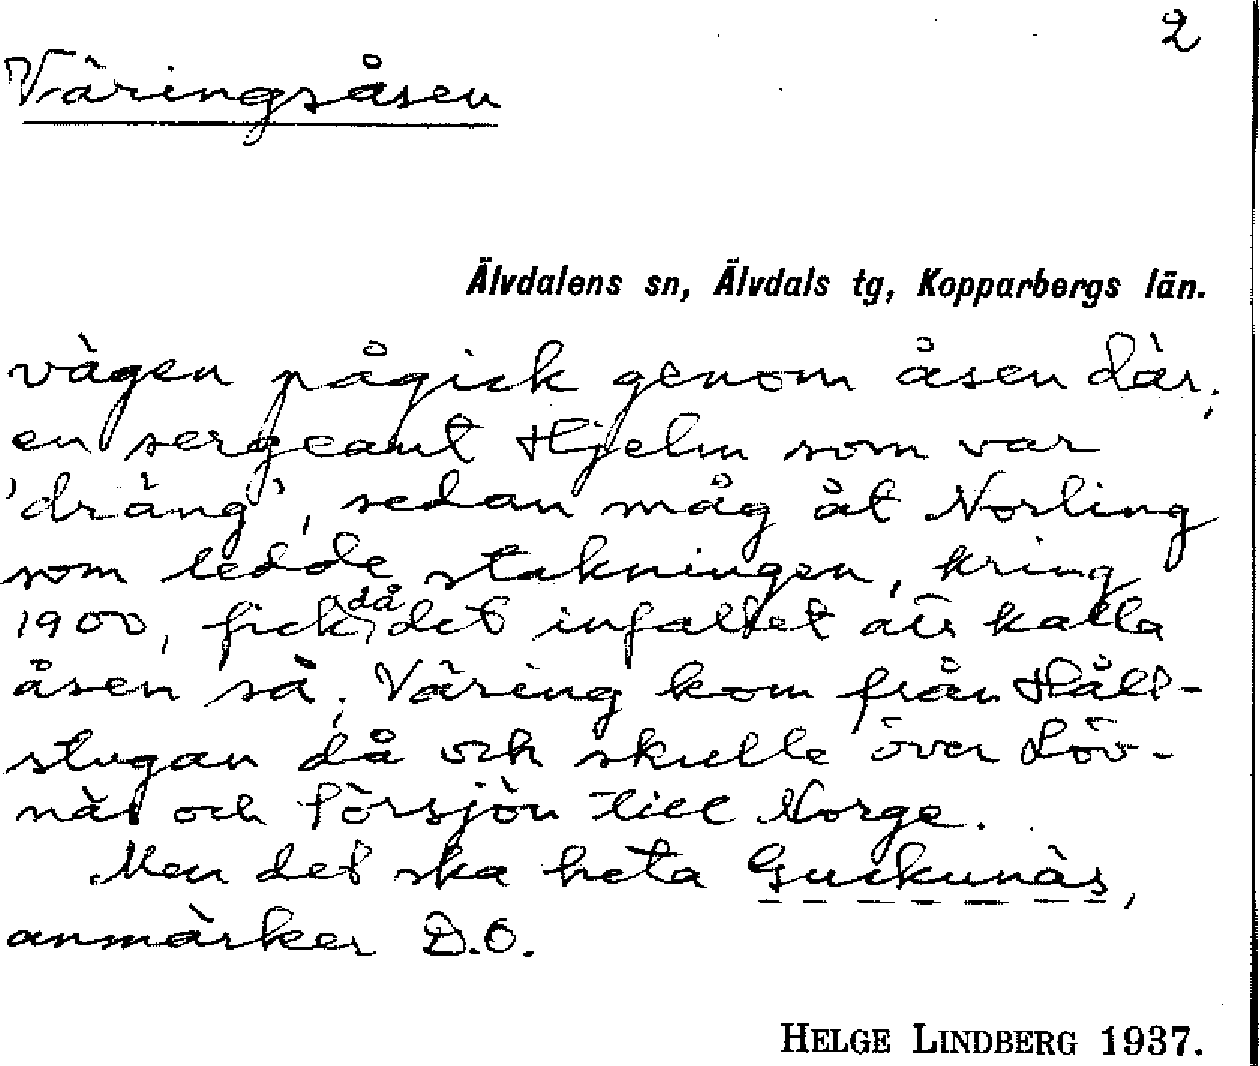 2
Väringsåsen
Älvdalens sn, Älvdals tg, Kopparbergs län.
vägen pågick genom åsen där;
en sergeant Hjelm som var
'dräng', sedan måg åt Norling
som ledde stakningen, kring
1900, fick då det infallet att kalla
åsen så; Väring kom från Håll-
stugan då och skulle över Löv-
näs och Törsjön till Norge.
Men det ska heta Guckunäs,
anmärker D.O.
HELGE LINDBERG 1937.